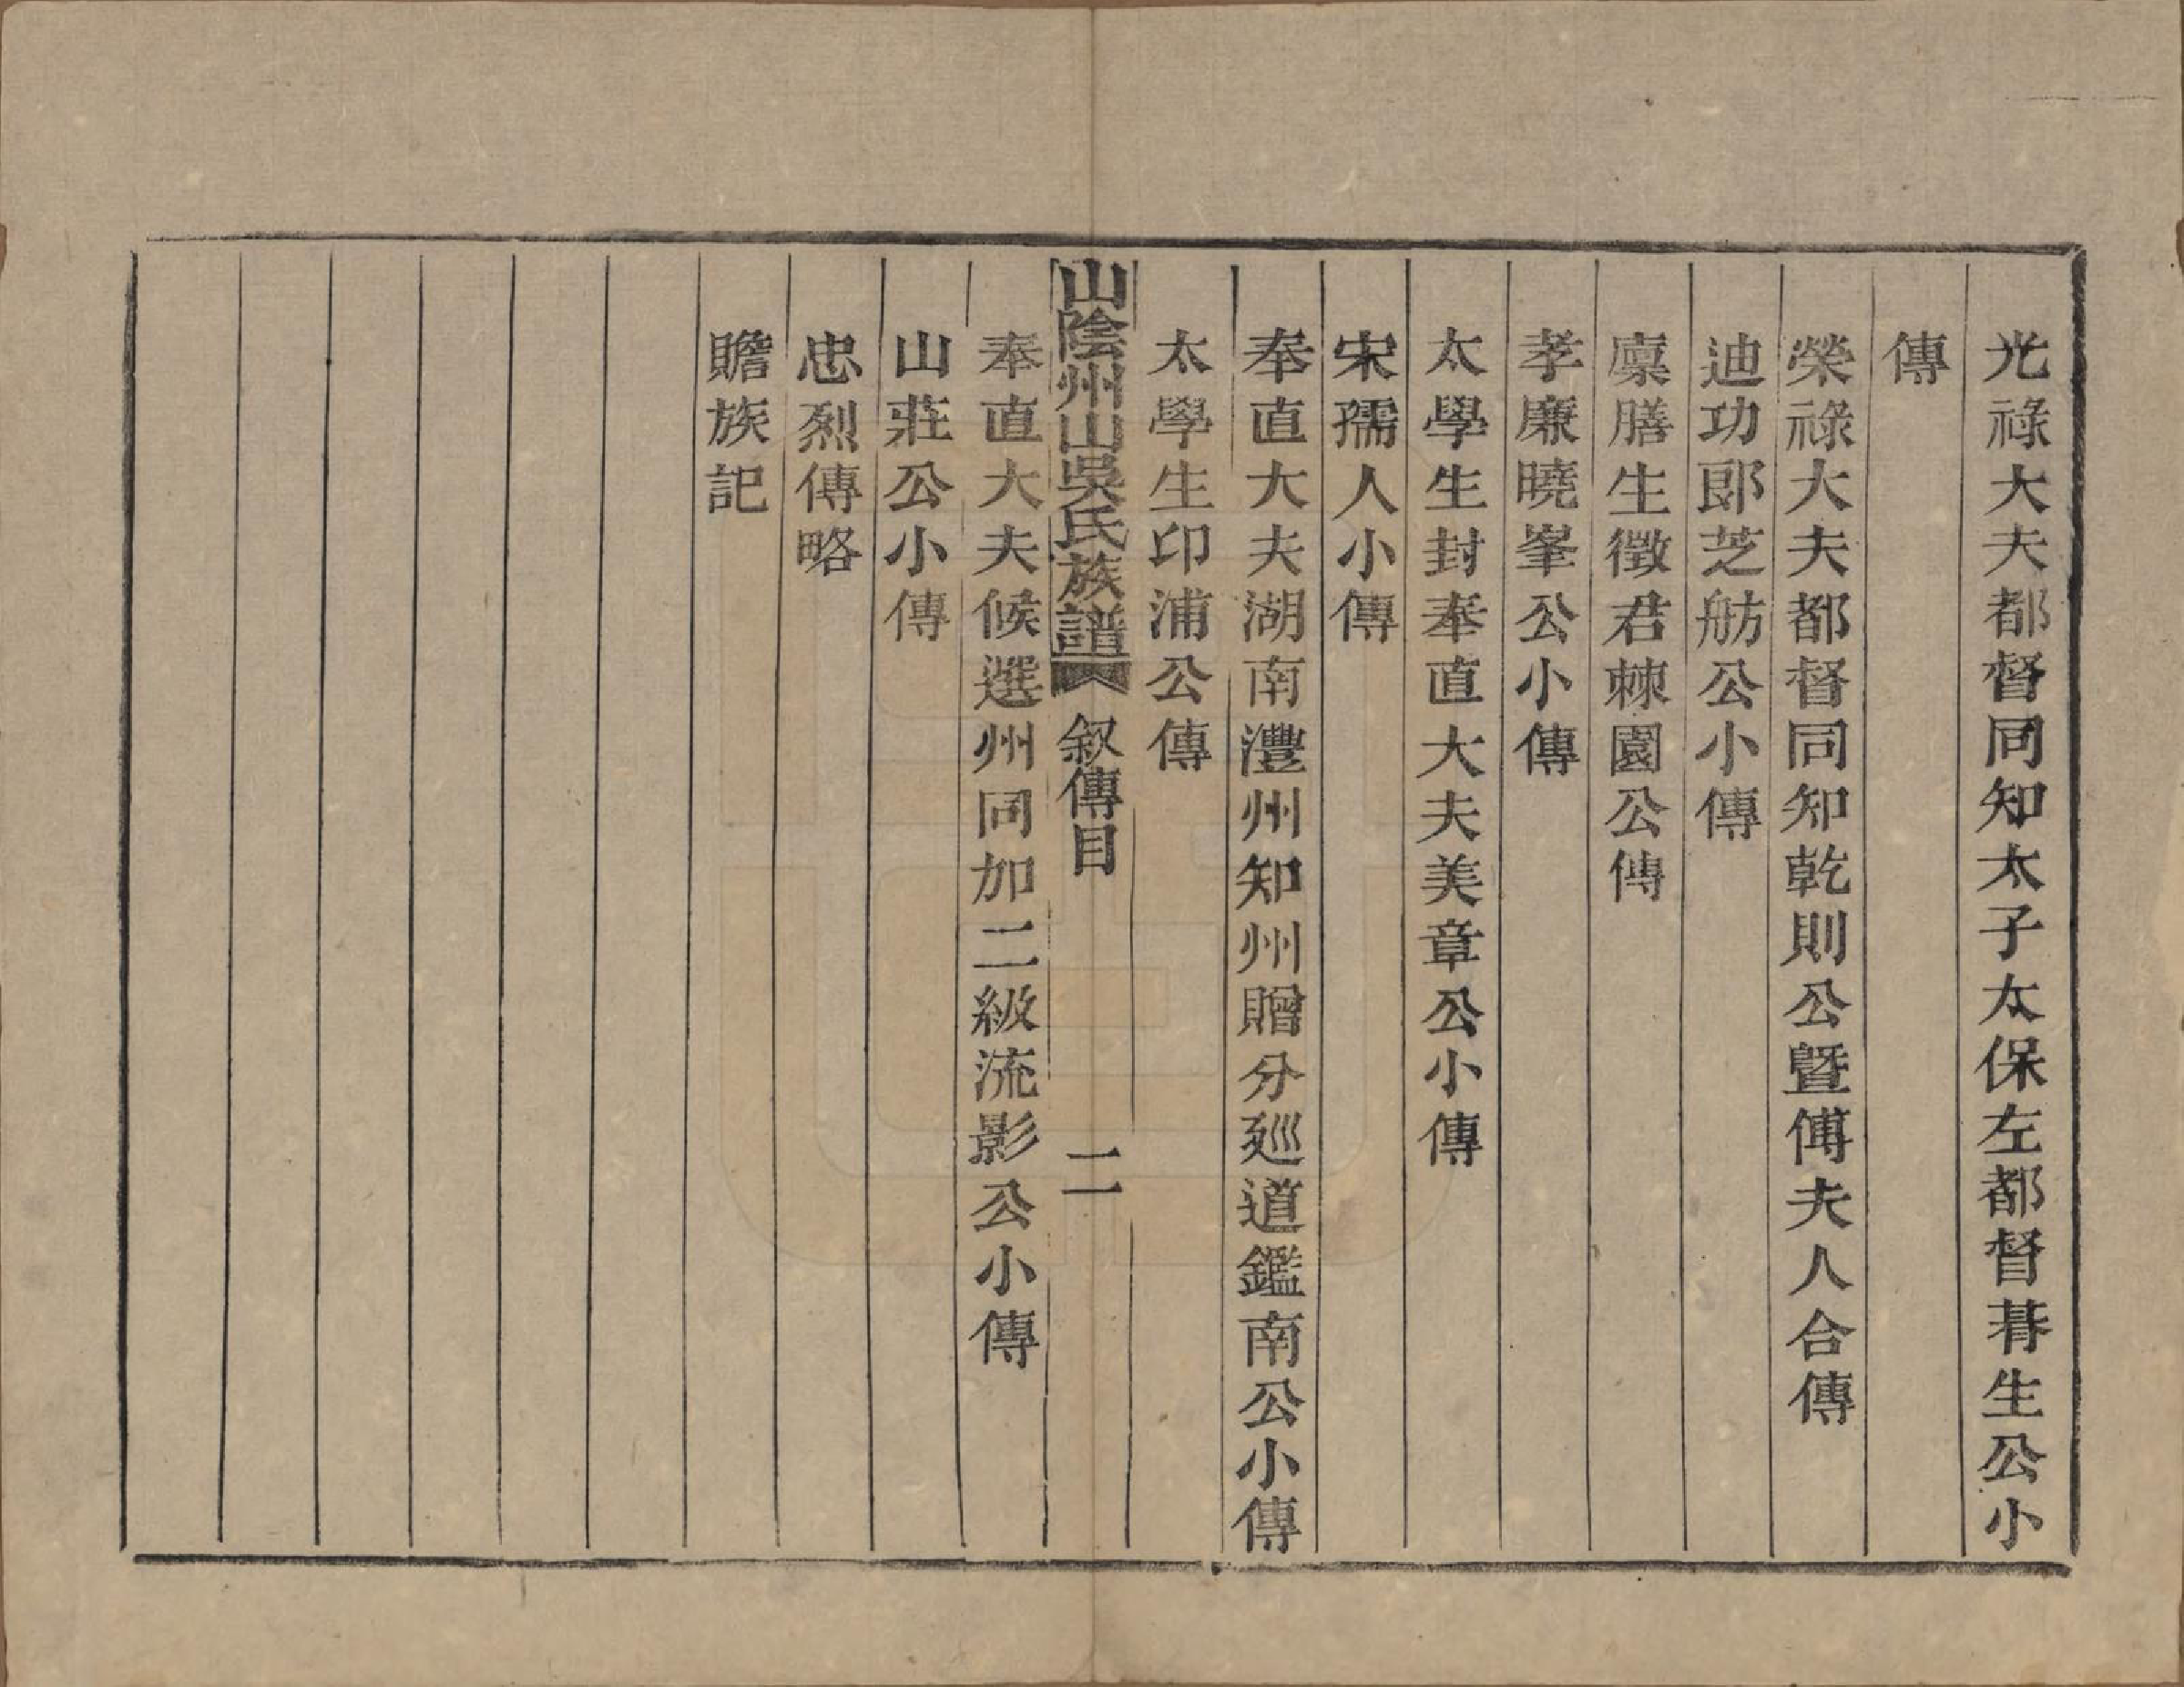 光祿大夫都督同知太子太保左都督朞生公小
傳
榮祿大夫都督同知乾則公暨傅夫人合傳
迪功郎芝舫公小傳
廩膳生徵君棘園公傳
孝廉曉峯公小傳
太學生封奉直大夫美章公小傳
宋孺人小傳
奉直大夫湖南灃州知州贈分廵道鑑南公小傳
太學生印浦公傳
山陰州山吳氏族譜 叙傳目 二
奉直大夫候選州同加二級流影公小傳
山莊公小傳
忠烈傳略
贍族記